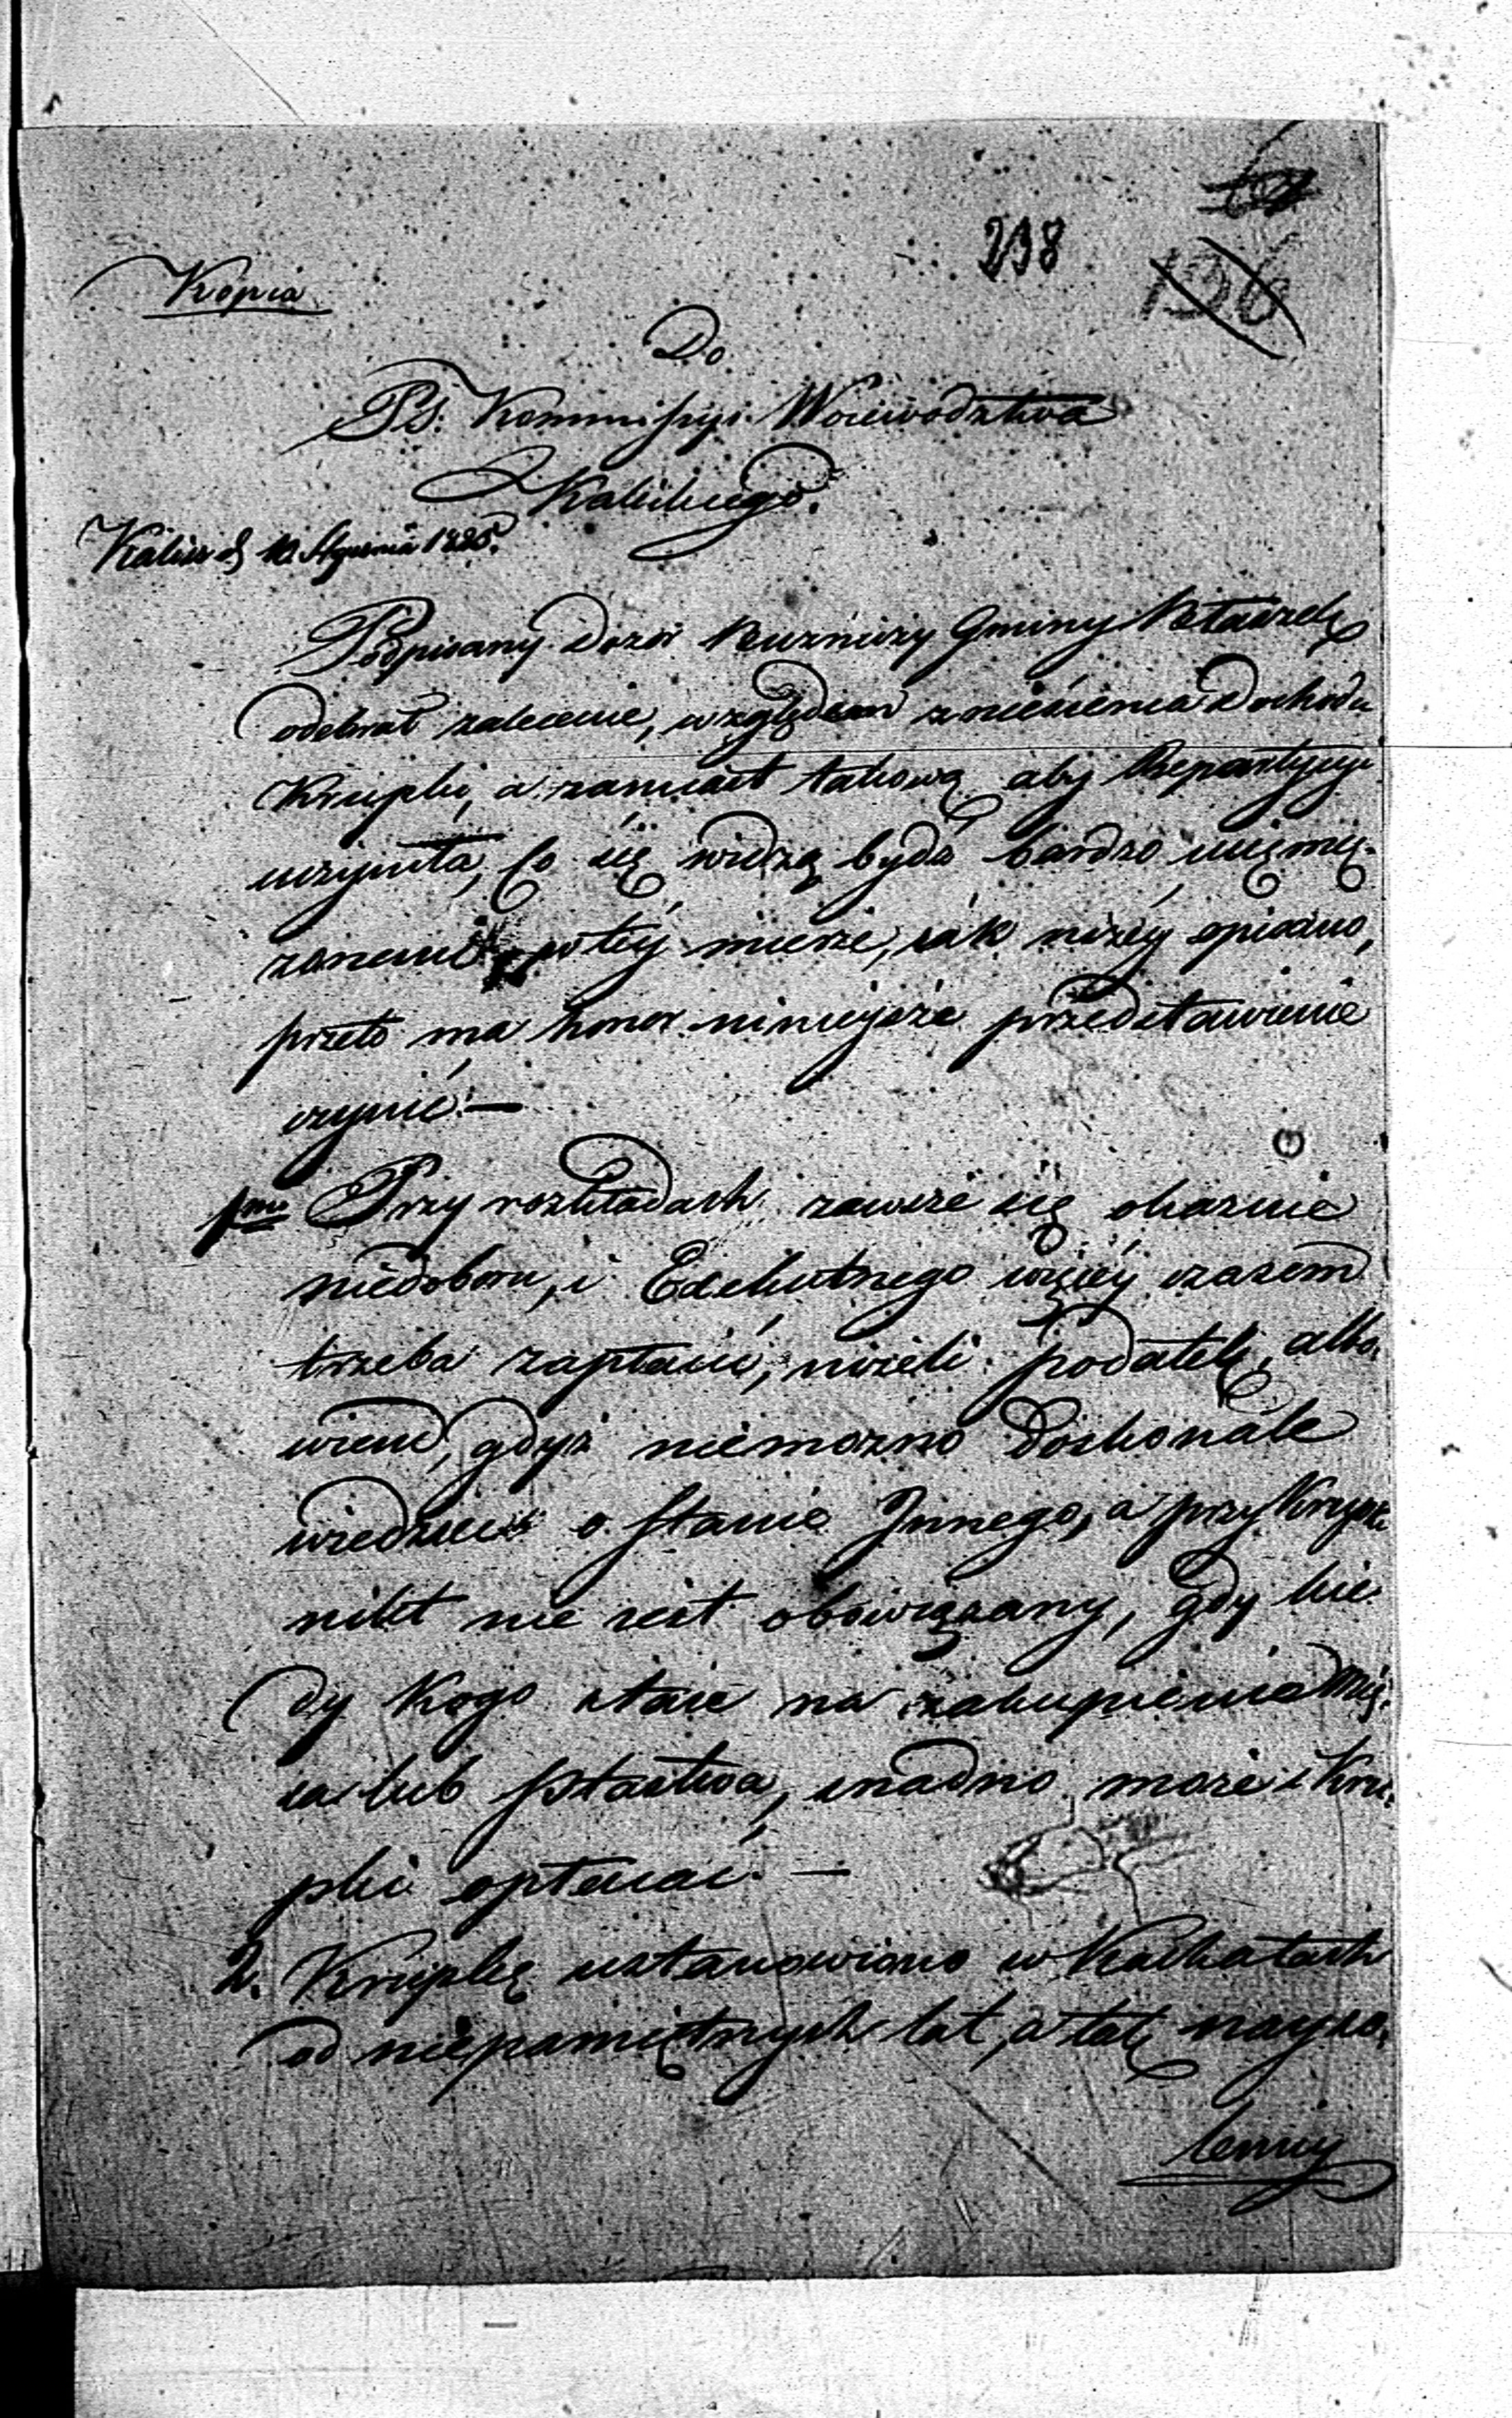 238
126
Kopia
Do
Ps. Kommissyi Woiewodztwa
Kaliskiego.
Kalisz d. 10 Stycznia 1825.
Podpisany Dozór Bużniczy Gminy Błaszek
odebrał zalecenie, względem zniesienia Dochodu
Krupki, a zamiast takową aby Repartycyi
uczyniła, Co się widzą bydź bardzo uciemię-
zonemi potéy mierze, iák niżéy opisano,
przeto ma honor ninieysze przedstawienie
czynić. —
1mo Przy rozkładach zawsze się okazuie
niedoboru, i Exekutnego więcéy czasem
trzeba zapłacić, niżeli podatek, albo-
wiem, gdyż niemozno doskonale
wiedzieć o stanie Innego, a przy Krupki
nikt nie iest obowiązany, gdy kie-
dy kogo staie na zakupienie Mię-
sa lub ptastwa, snadno może i Kru-
pki opłacać. —
2. Krupkę ustanowiono w Kachałach
od niepamiętnych lat, a tak nayzo-